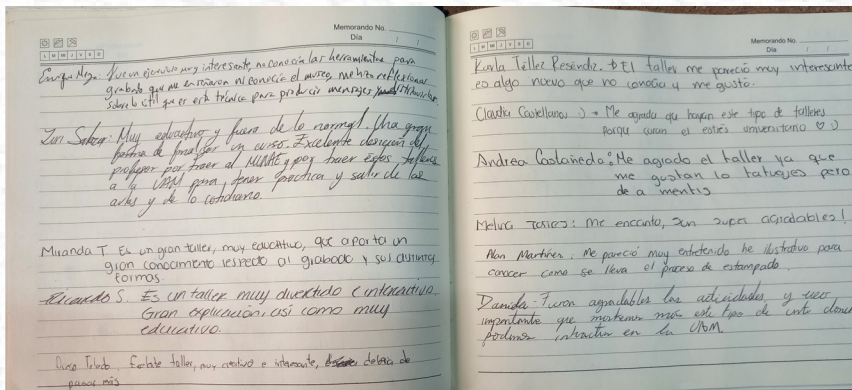 Memorando No.
Día / /
L M M J V S D
Enrique Mza. Fue un ejercicio muy interesante, no conocía las herramientas para
grabado que me enseñaron ni conocía el museo, me hizo reflexionar
sobre lo útil que es esta técnica para producir mensajes
Muy educativo y fuera de lo normal. Una gran
forma de finalizar un curso. Excelente decisión del
profesor por traer al MUNAE y por traer estos talleres
a la UAM para tener practica y salir de las
aulas y de lo cotidiano.
Miranda T. Es un gran taller, muy educativo, que aporta un
gran conocimiento respecto al grabado y sus distintas
formas.
Ricardo S. Es un taller muy divertido e interactivo.
Gran explicación, así como muy
educativo.
taller, muy creativo e interesante, debería de
pasar más
Memorando No.
Día / /
L M M J V S D
Karla Téllez Reséndiz. El taller me pareció muy interesante
es algo nuevo que no conocía y me gustó.
Claudia Castellanos :) Me agrada que hayan este tipo de talleres
porque curan el estrés universitario ♡ :)
Andrea Castañeda: Me agrado el taller ya que
me gustan lo tatuajes pero
de a mentis
me encanto, son super agradables!
Alan Martínez. Me pareció muy entretenido he ilustrativo para
conocer como se lleva el proceso de estampado.
Daniela: Fueron agradables las actividades, y creo
importante que mostemos más este tipo de arte donde
podemos interactuar en la UAM